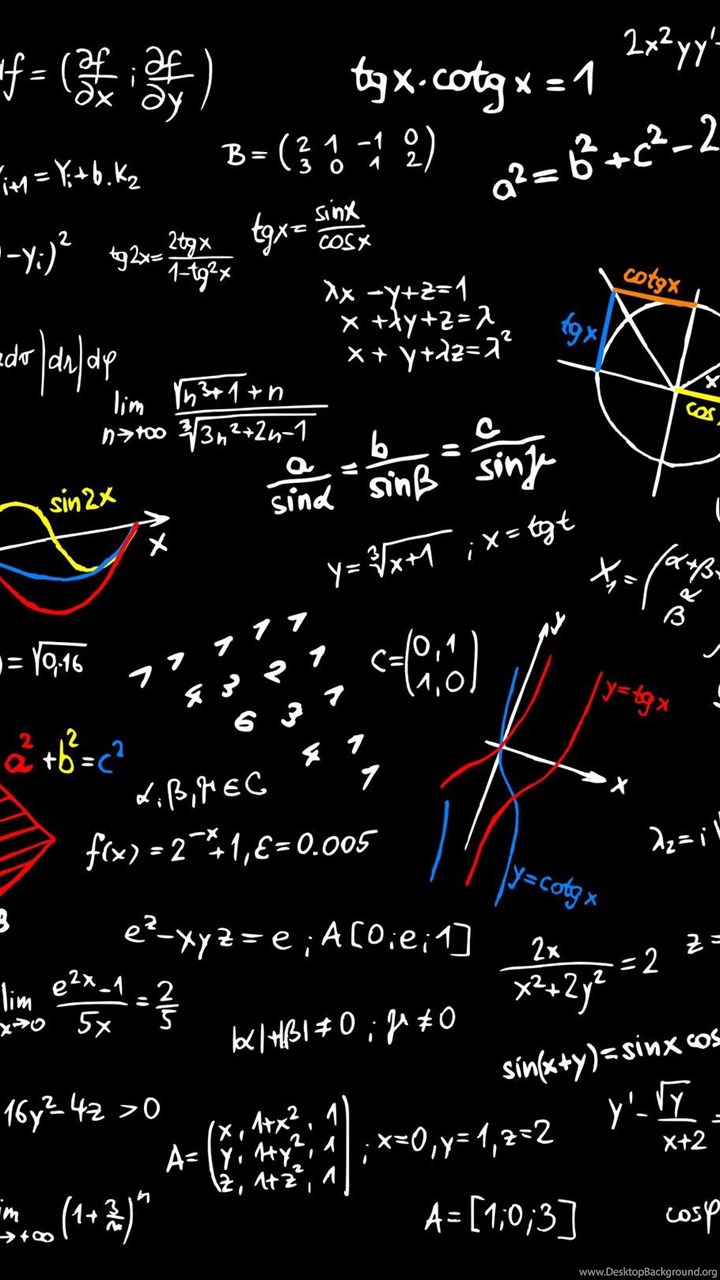 f = (∂f/∂x ; ∂f/∂y)
tgx·cotgx = 1
2x²yy'
B = (2 1 -1 0 / 3 0 1 2)
a² = b² + c² - 2
i+1 = Yi + b·K₂
-Yi)²
tg2x = 2tgx/1-tg²x
tgx = sinx/cosx
λx - y + z = 1
x + λy + z = λ
x + y + λz = λ²
cotgx
tgx
x
cos
|dr|dφ
lim n→+∞ √(n³+1) + n / ∛(3n²+2n-1)
a/sinα = b/sinβ = c/sinγ
sin2x
x
y = ∛(x+1) ; x = tgt
X₁ = (α+β
β^α
) = √0,16
1 1 1 1 1
4 3 2 1
6 3 1
4 1
1
C = (0,1 / 1,0)
y
y=tgx
x
y=cotgx
a² + b² = c²
α, β, γ ∈ C
f(x) = 2^-x + 1, ε = 0.005
λ₂ = i
e² - xyz = e ; A[0;e;1]
2x/x²+2y² = 2
z =
lim x→0 e^2x-1/5x = 2/5
|α|+|β| ≠ 0 ; γ ≠ 0
sin(x+y) = sinx cos
16y² - 4z > 0
A = (x, 1+x², 1 / y, 1+y², 1 / z, 1+z², 1) ; x=0, y=1, z=2
y' - √y/x+2
→+∞ (1+3/n)^n
A = [1;0;3]
cosφ
www.DesktopBackground.org